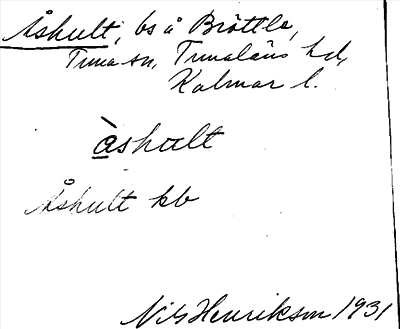 Åshult, bs å Bröttla,
Tuna sn, Tunaläns hd,
Kalmar l.
àshult
Åshult kb
Nils Henrikson 1931